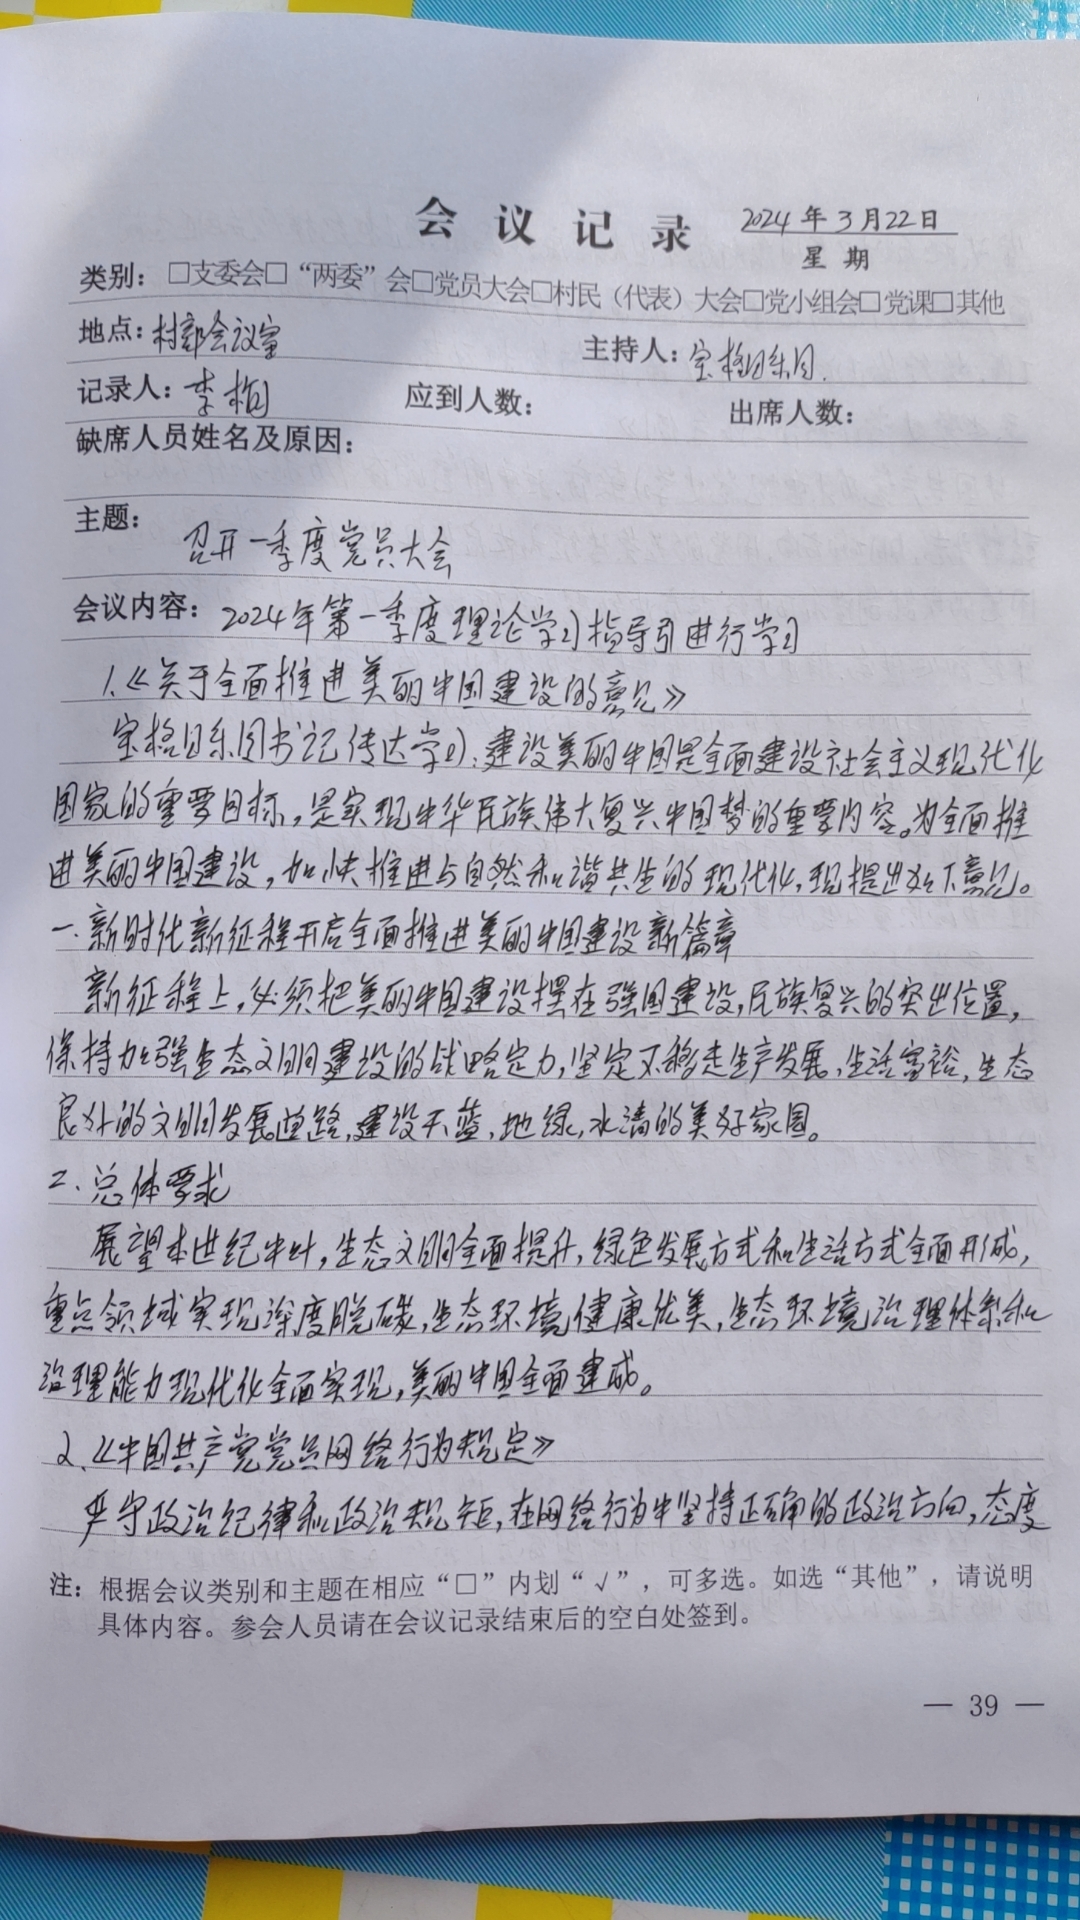 会 议 记 录 2024年3月22日
星 期
类别：□支委会□“两委”会□党员大会□村民（代表）大会□党小组会□党课□其他
地点：村部会议室 主持人：宝格日乐图.
记录人：李柏 应到人数： 出席人数：
缺席人员姓名及原因：
主题：
召开一季度党员大会
会议内容：2024年第一季度理论学习指导引进行学习
1.《关于全面推进美丽中国建设的意见》
宝格日乐图书记传达学习：建设美丽中国是全面建设社会主义现代化
国家的重要目标，是实现中华民族伟大复兴中国梦的重要内容。为全面推
进美丽中国建设，加快推进与自然和谐共生的现代化，现提出如下意见。
一.新时代新征程开启全面推进美丽中国建设新篇章
新征程上，必须把美丽中国建设摆在强国建设，民族复兴的突出位置，
保持加强生态文明建设的战略定力，坚定不移走生产发展，生活富裕，生态
良好的文明发展道路，建设天蓝，地绿，水清的美好家园。
二.总体要求
展望本世纪中叶，生态文明全面提升，绿色发展方式和生活方式全面形成，
重点领域实现深度脱碳，生态环境健康优美，生态环境治理体系和
治理能力现代化全面实现，美丽中国全面建成。
2.《中国共产党党员网络行为规定》
严守政治纪律和政治规矩，在网络行为中坚持正确的政治方向，态度
注：根据会议类别和主题在相应“□”内划“√”，可多选。如选“其他”，请说明
具体内容。参会人员请在会议记录结束后的空白处签到。
— 39 —